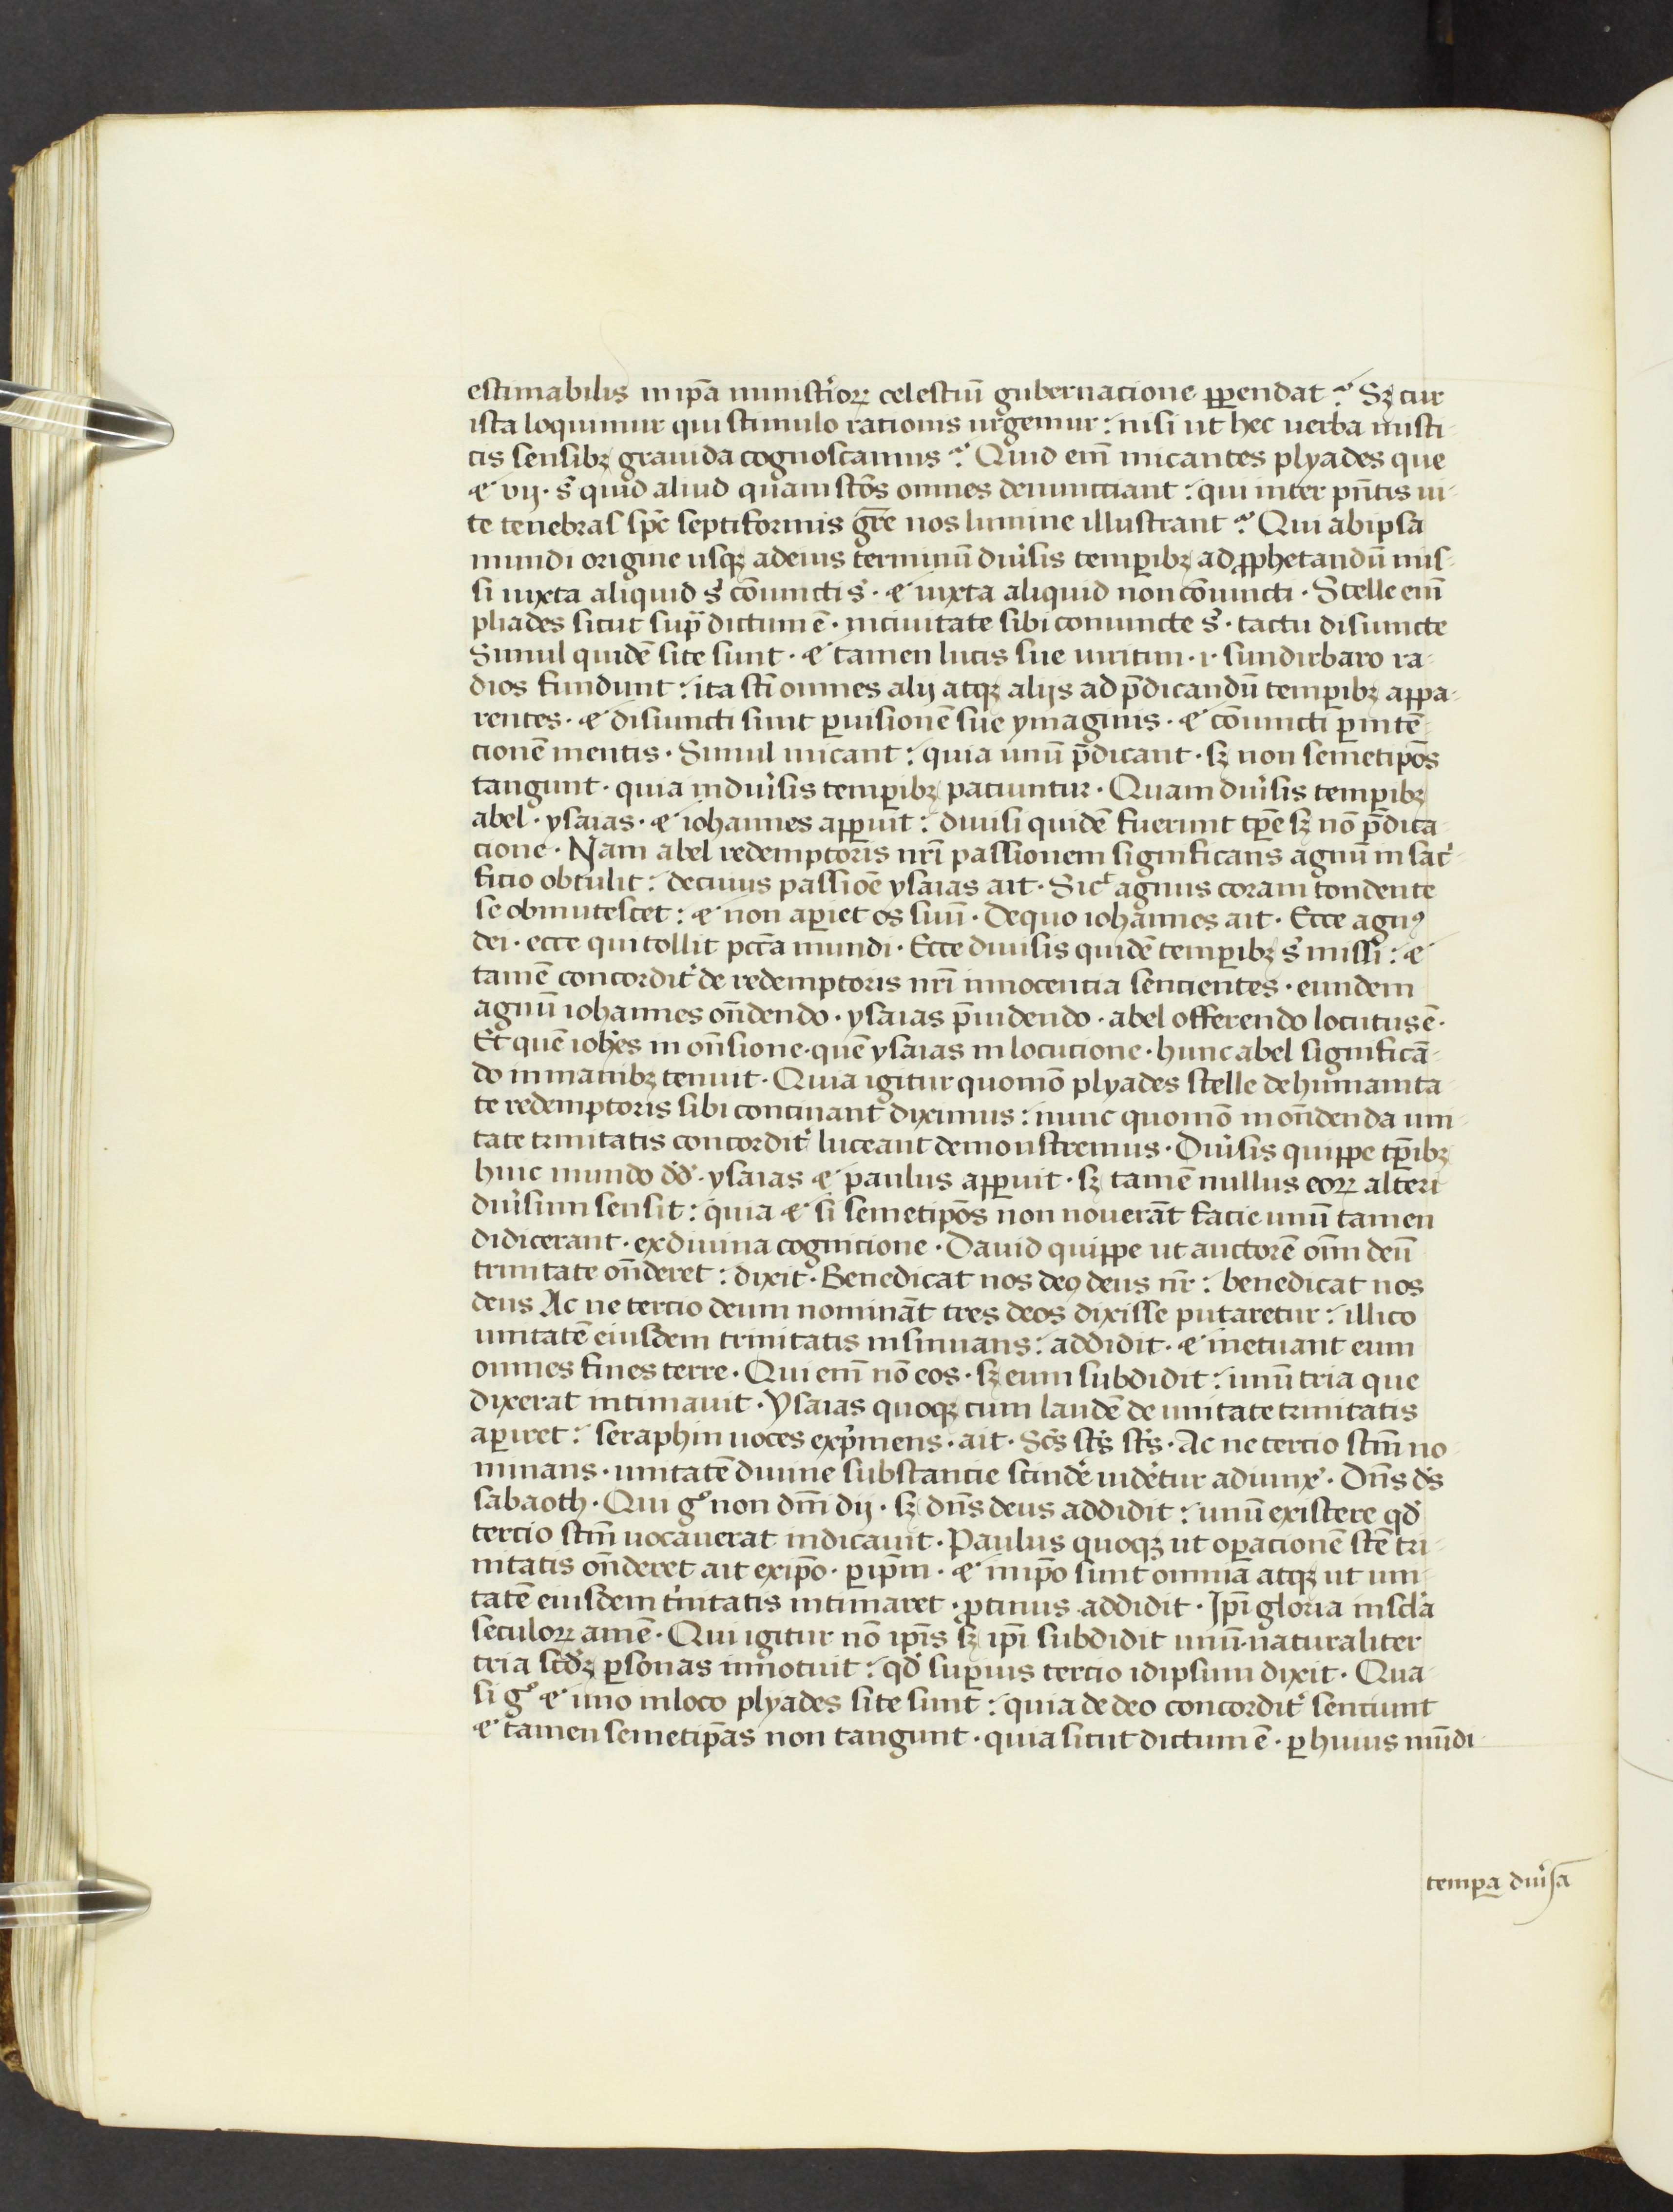 estimabilis in ip̄a ministr̄ioꝝ celestiū gubernacione ꝑpendat? Sꝫ cur
ista loquimur qui stimulo rationis urgemur: nisi ut hec uerba misti-
cis sensibꝫ grauida cognoscamus? Quid em̄ micantes plyades que
⁊ vij· s̄ quid aliud quam sc̄os omnes denuncciant: qui inter pn̄tis ui-
te tenebras sp̄c septiformis gr̄e nos lumine illustrant? Qui ab ipsa
mundi origine usqꝫ ad eius terminū diu̓sis temꝑibꝫ ad ꝓphetandū mis-
si iuxta aliquid s̄ cōiuncti s̄· ⁊ iuxta aliquid non cōiuncti· Stelle em̄
pliades sicut supᷓ dictum ē· inciuitate sibi coniuncte s̄· tactu disiuncte
Simul quidē site sunt· ⁊ tamen lucis sue uiritim ·i· sundirbaro ra-
dios fundunt: ita sc̄i omnes alij atqꝫ alijs ad p̄dicandū temꝑibꝫ appa-
rentes· ⁊ disiuncti sunt ꝑ uisionē sue ymaginis· ⁊ cōiuncti ꝑ intē-
cionē mentis· Simul micant: quia unū p̄dicant· sꝫ non semetip̄os
tangunt· quia in diu̓sis temꝑibꝫ paciuntur· Quam diu̓sis temꝑibꝫ
abel· ysaias· ⁊ iohannes apꝑuit: diuisi quidē fuerunt tp̄e sꝫ nō p̄dica-
cione· Nam abel redemptoris nr̄i passionem significans agnū in sac̓-
ficio obtulit: de cuius passiōe ysaias ait· Sicᵗ agnus coram tondente
se obmutescet: ⁊ non aꝑiet os suū· De quo iohannes ait· Ecce agnꝰ
dei· ecce qui tollit pcc̄a mundi· Ecce diuisis quidē temꝑibꝫ s̄ missi: ⁊
tamē concordit̓ de redemptoris nr̄i innocencia sencientes· eundem
agnū iohannes on̄dendo· ysaias p̄uidendo· abel offerendo locutus ē·
Et quē ioh̓es in on̄sione· quē ysaias in locucione· hunc abel significā-
do in manibꝫ tenuit· Quia igitur quomō plyades stelle de humanita-
te redemptoris sibi continant diximus: nunc quomō in on̄denda uni-
tate trinitatis concordit̓ luceant demonstremus· Diu̓sis quippe tp̄ibꝫ
huic mundo dd̓· ysaias ⁊ paulus apꝑuit· sꝫ tamē nullus eoꝝ alteri
diu̓sum sensit: quia ⁊ si semetip̄os non nouerāt facie unū tamen
didicerant· ex diuina cognicione· Dauid quippe ut auctorē om̄i deū
trinitate on̄deret: dixit· Benedicat nos deꝰ deus nr̄: benedicat nos
deus Ac ne tercio deum nomināt tres deos dixisse putaretur: illico
unitatē eiusdem trinitatis insinuans: addidit· ⁊ metuant eum
omnes fines terre· Qui em̄ nō eos· sꝫ eum subdidit: unū tria que
dixerat intimauit· Ysaias quoqꝫ cum laudē de unitate trinitatis
aꝑiret: seraphin uoces exp̓mens· ait· Sc̄s sc̄s sc̄s· Ac ne tercio sc̄m no-
minans· unitatē diuine substancie scinde̓ uide̓tur adiunx̓· Dn̄s ds̓
sabaoth· Qui g̊ non dm̄ dij· sꝫ dn̄s deus addidit: unū existere qd̓
tercio sc̄m uocauerat indicauit· Paulus quoqꝫ ut oꝑacionē sc̄e tri-
nitatis on̄deret ait ex ip̄o· ꝑ ip̄m· ⁊ in ip̄o sunt omnia atqꝫ ut uni-
tatē eiusdem t̓nitatis intimaret· ꝓtinus addidit· Ip̄i gloria in scl̓a
seculoꝝ amē· Qui igitur nō ip̄is sꝫ ip̄i subdidit unū naturaliter
tria scd̓ꝫ ꝑsonas innotuit: qd̓ suꝑius tercio idipsum dixit· Qua-
si g̊ ⁊ uno in loco plyades site sunt: quia de deo concordit̓ senciunt
⁊ tamen semetip̄as non tangunt· quia sicut dictum ē· ꝑ huius mūdi
temꝑa diu̓sa